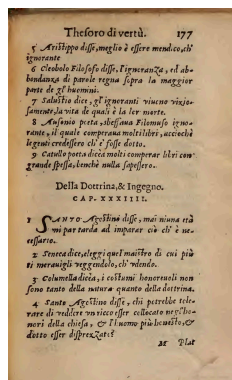 Thesoro di vertù. 177
5 Aristippo disse, meglio è essere mendico, ch'
ignorante
6 Cleobolo Filosofo disse, l'ignoranza, ed ab-
bondanza di parole regna sopra la maggior
parte de gl'huomini.
7 Salustio dice, gl'ignoranti viueno vizio-
samente, la vita de quali è la lor morte.
8 Ausonio poeta, sbeffaua Filomuso igno-
rante, il quale comperaua molti libri, acciochè
legenti credessero ch'e' fosse dotto.
9 Catullo poeta dicea molti comperar libri con
grande spessa, benchè nulla sapessero.
Della Dottrina, & Ingegno.
CAP. XXXIIII.
1 SANTO Agostino disse, mai niuna età
mi par tarda ad imparar ciò ch'è ne-
cessario.
2 Seneca dice, eleggi quel maistro di cui più
ti merauigli veggendolo, ch'vdendo.
3 Columella dicea, i costumi honoreuoli non
sono tanto della natura quanto della dottrina.
4 Santo Agostino disse, chi petrebbe tole-
rare di veddere vn ricco esser collocato negl'ho-
nori della chiesa, & l'huomo più honesto, &
dotto esser disprezzato?
M Plat